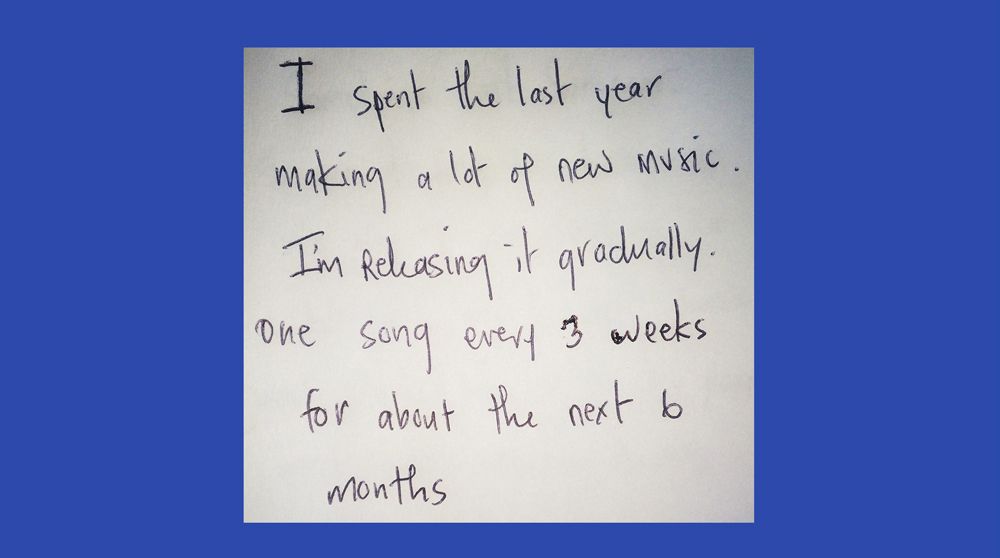 I spent the last year
making a lot of new music.
I'm Releasing it gradually.
one song every 3 weeks
for about the next 6
months